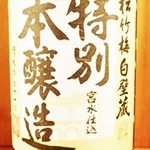 松竹梅白壁蔵
特別
宮水仕込
本醸造